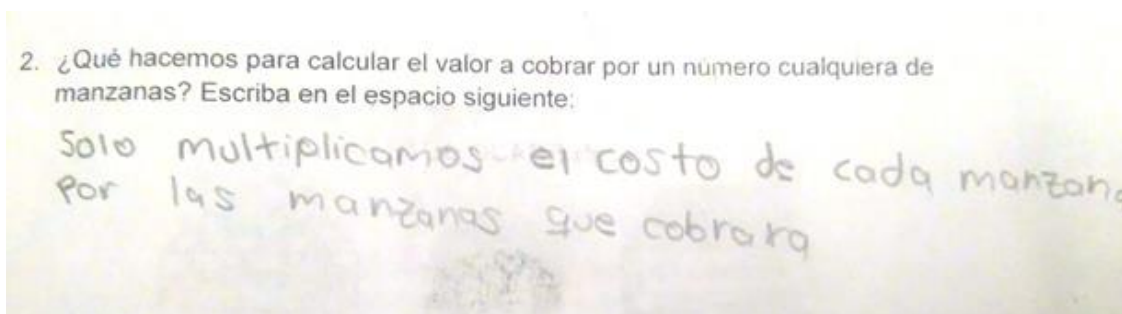 2. ¿Qué hacemos para calcular el valor a cobrar por un número cualquiera de
manzanas? Escriba en el espacio siguiente:
Solo multiplicamos el costo de cada manzana
Por las manzanas que cobrara